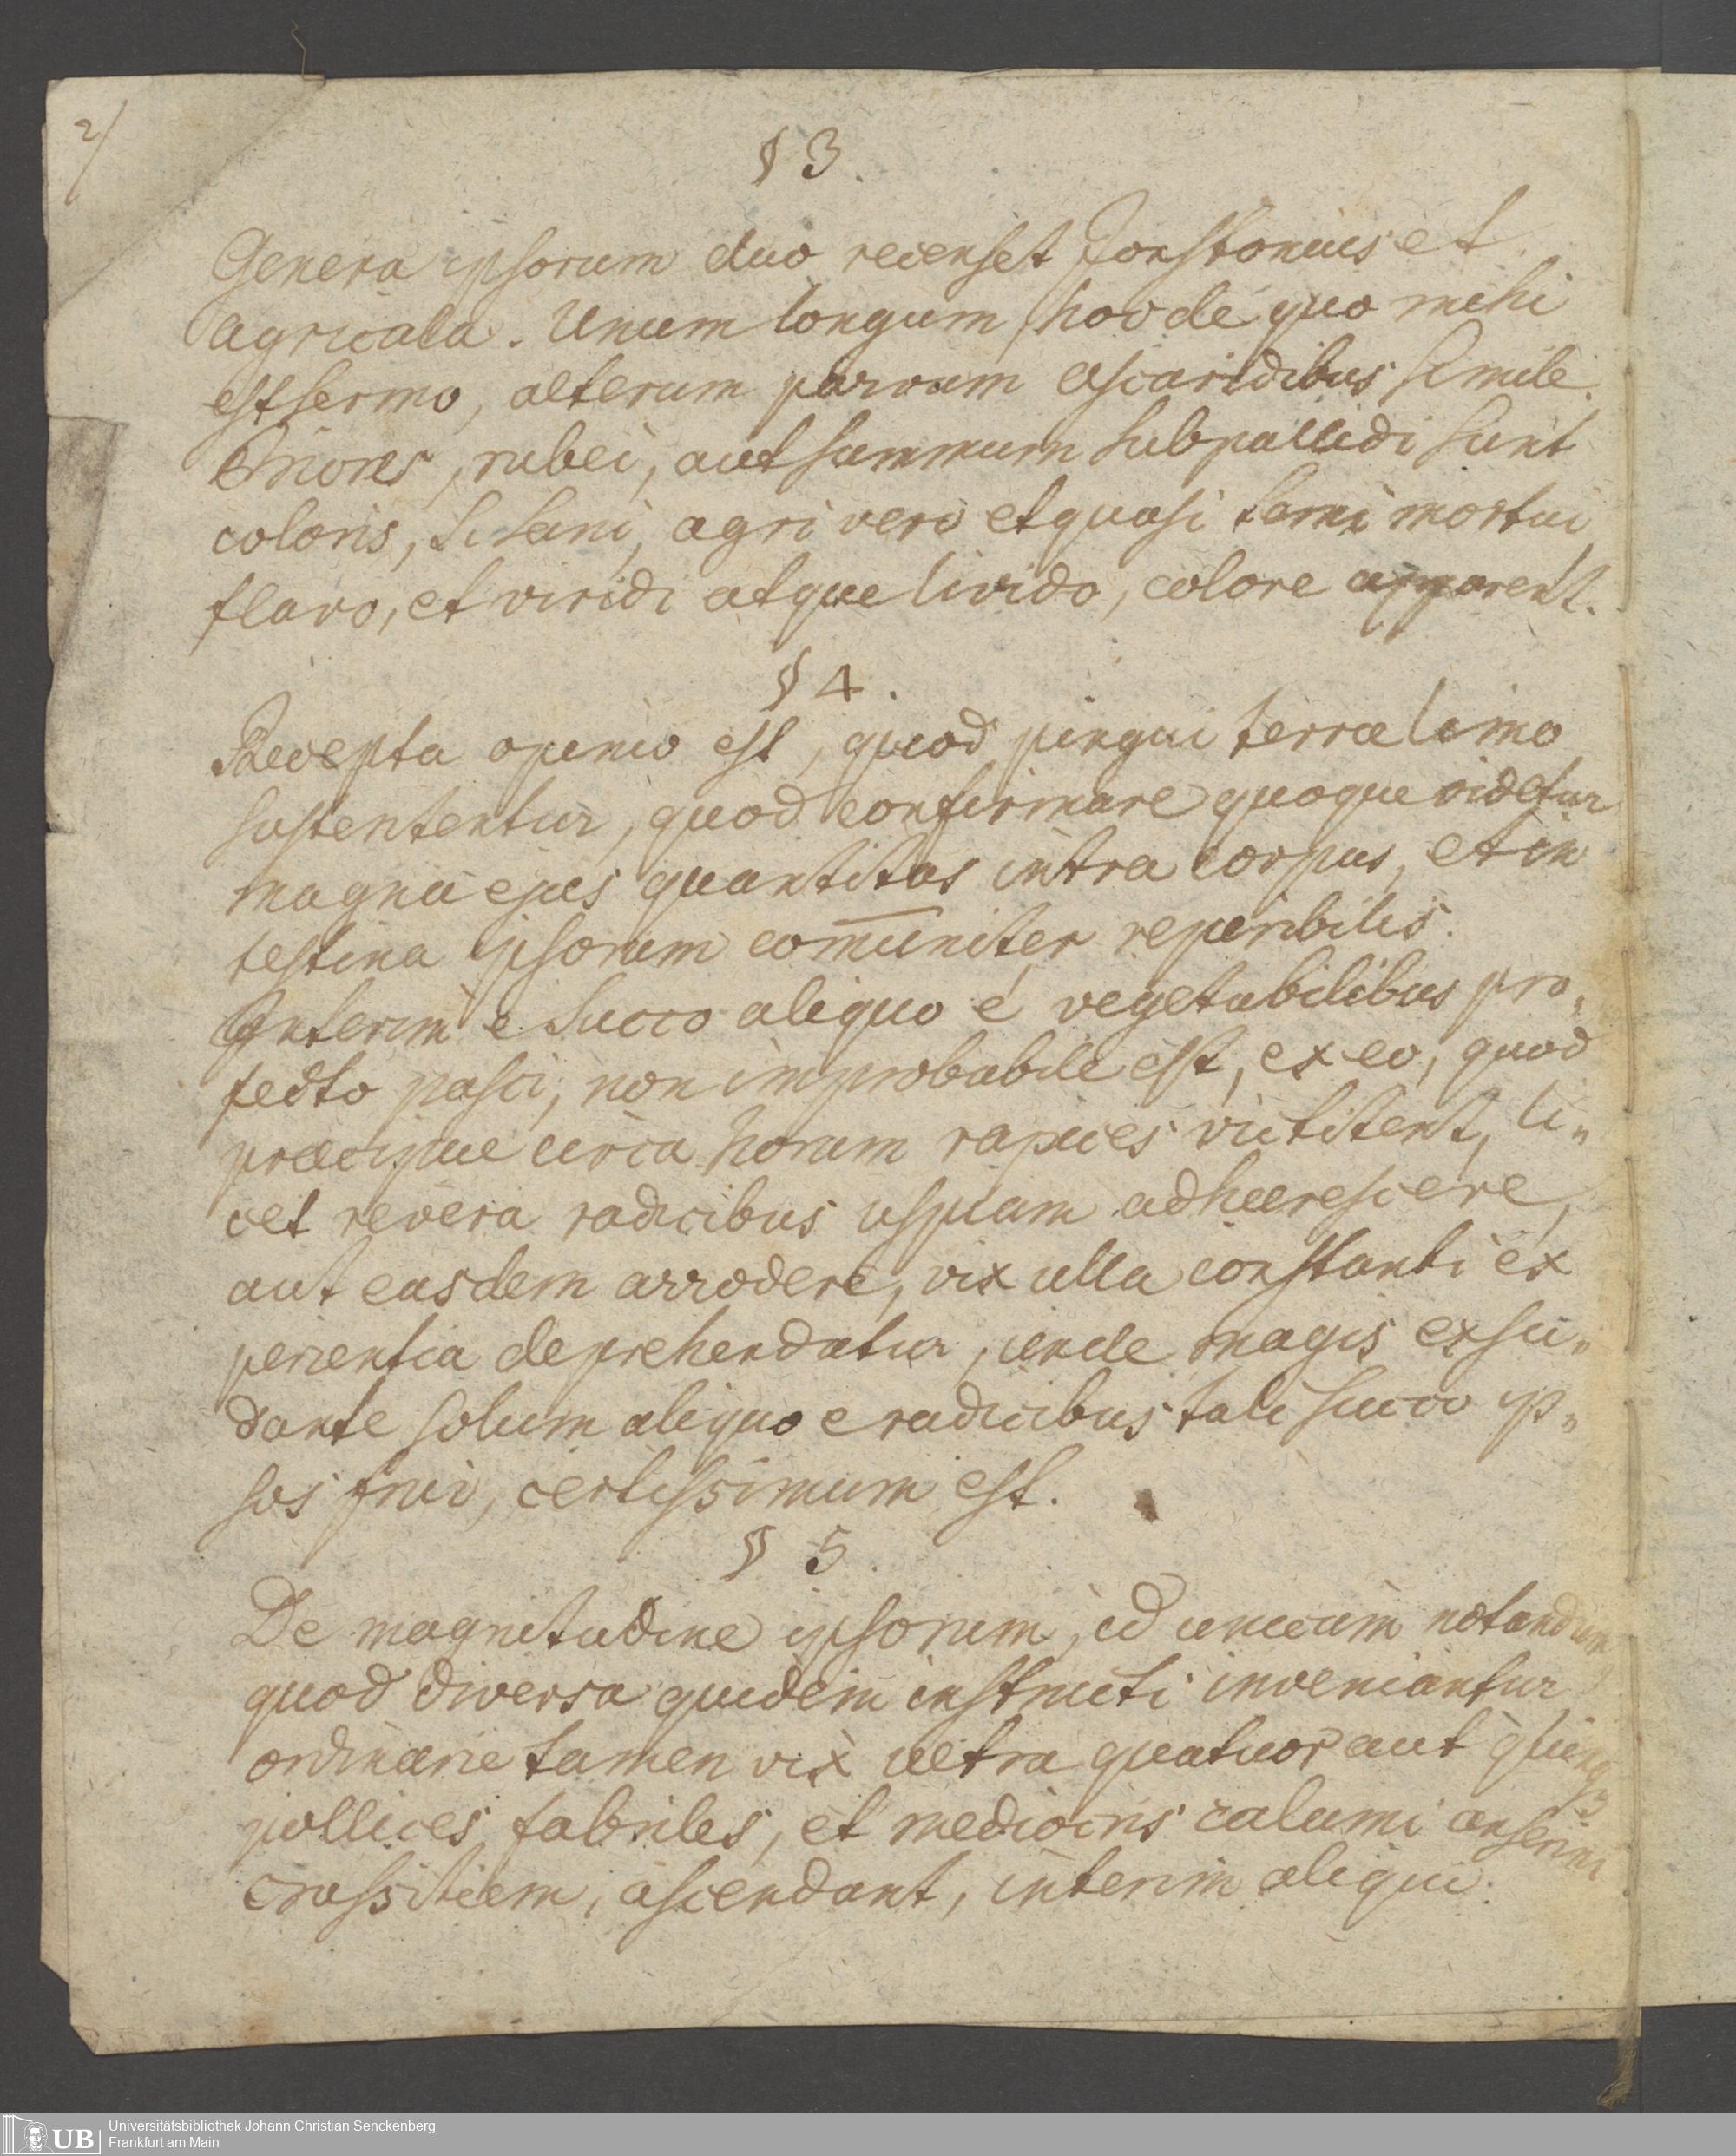 2/
§ 3.
Genera ipsorum duo recenset Jonstonius et
agricola. Unum longum, hoc de quo mihi
est sermo, alterum parvum ascaridibus simile.
Priores, rubei, aut summum subpallidi sunt
coloris, si sani, ægri vero et quasi semi mortui
flavo, et viridi atque livido, colore apparent.
§ 4.
Recepta opinio est, quod pingui terræ limo
sustententur, quod confirmare quoque videtur
magna ejus quantitas intra corpus, et in
testina ipsorum com̄uniter reperibilis.
Interim e succo aliquo é vegetabilibus pro„
fecto pasci, non improbabile est, ex eo, quod
præcipue circa horum radices victitent, li„
cet revera radicibus uspiam adhærescere,
aut easdem arrodere, vix ulla constanti ex
perientia deprehendatur, unde magis exsu„
dante solum aliquo e radicibus tali succo ip„
sos frui, certissimum est.
§ 5.
De magnitudine ipsorum, id unicum notandum
quod diversa quidem instructi inveniantur
ordinarie tamen vix ultra quatuor aut quinq3
pollices fabriles, et mediocris calami anserini
crassitiem, ascendant, interim aliqui
UB
Universitätsbibliothek Johann Christian Senckenberg
Frankfurt am Main